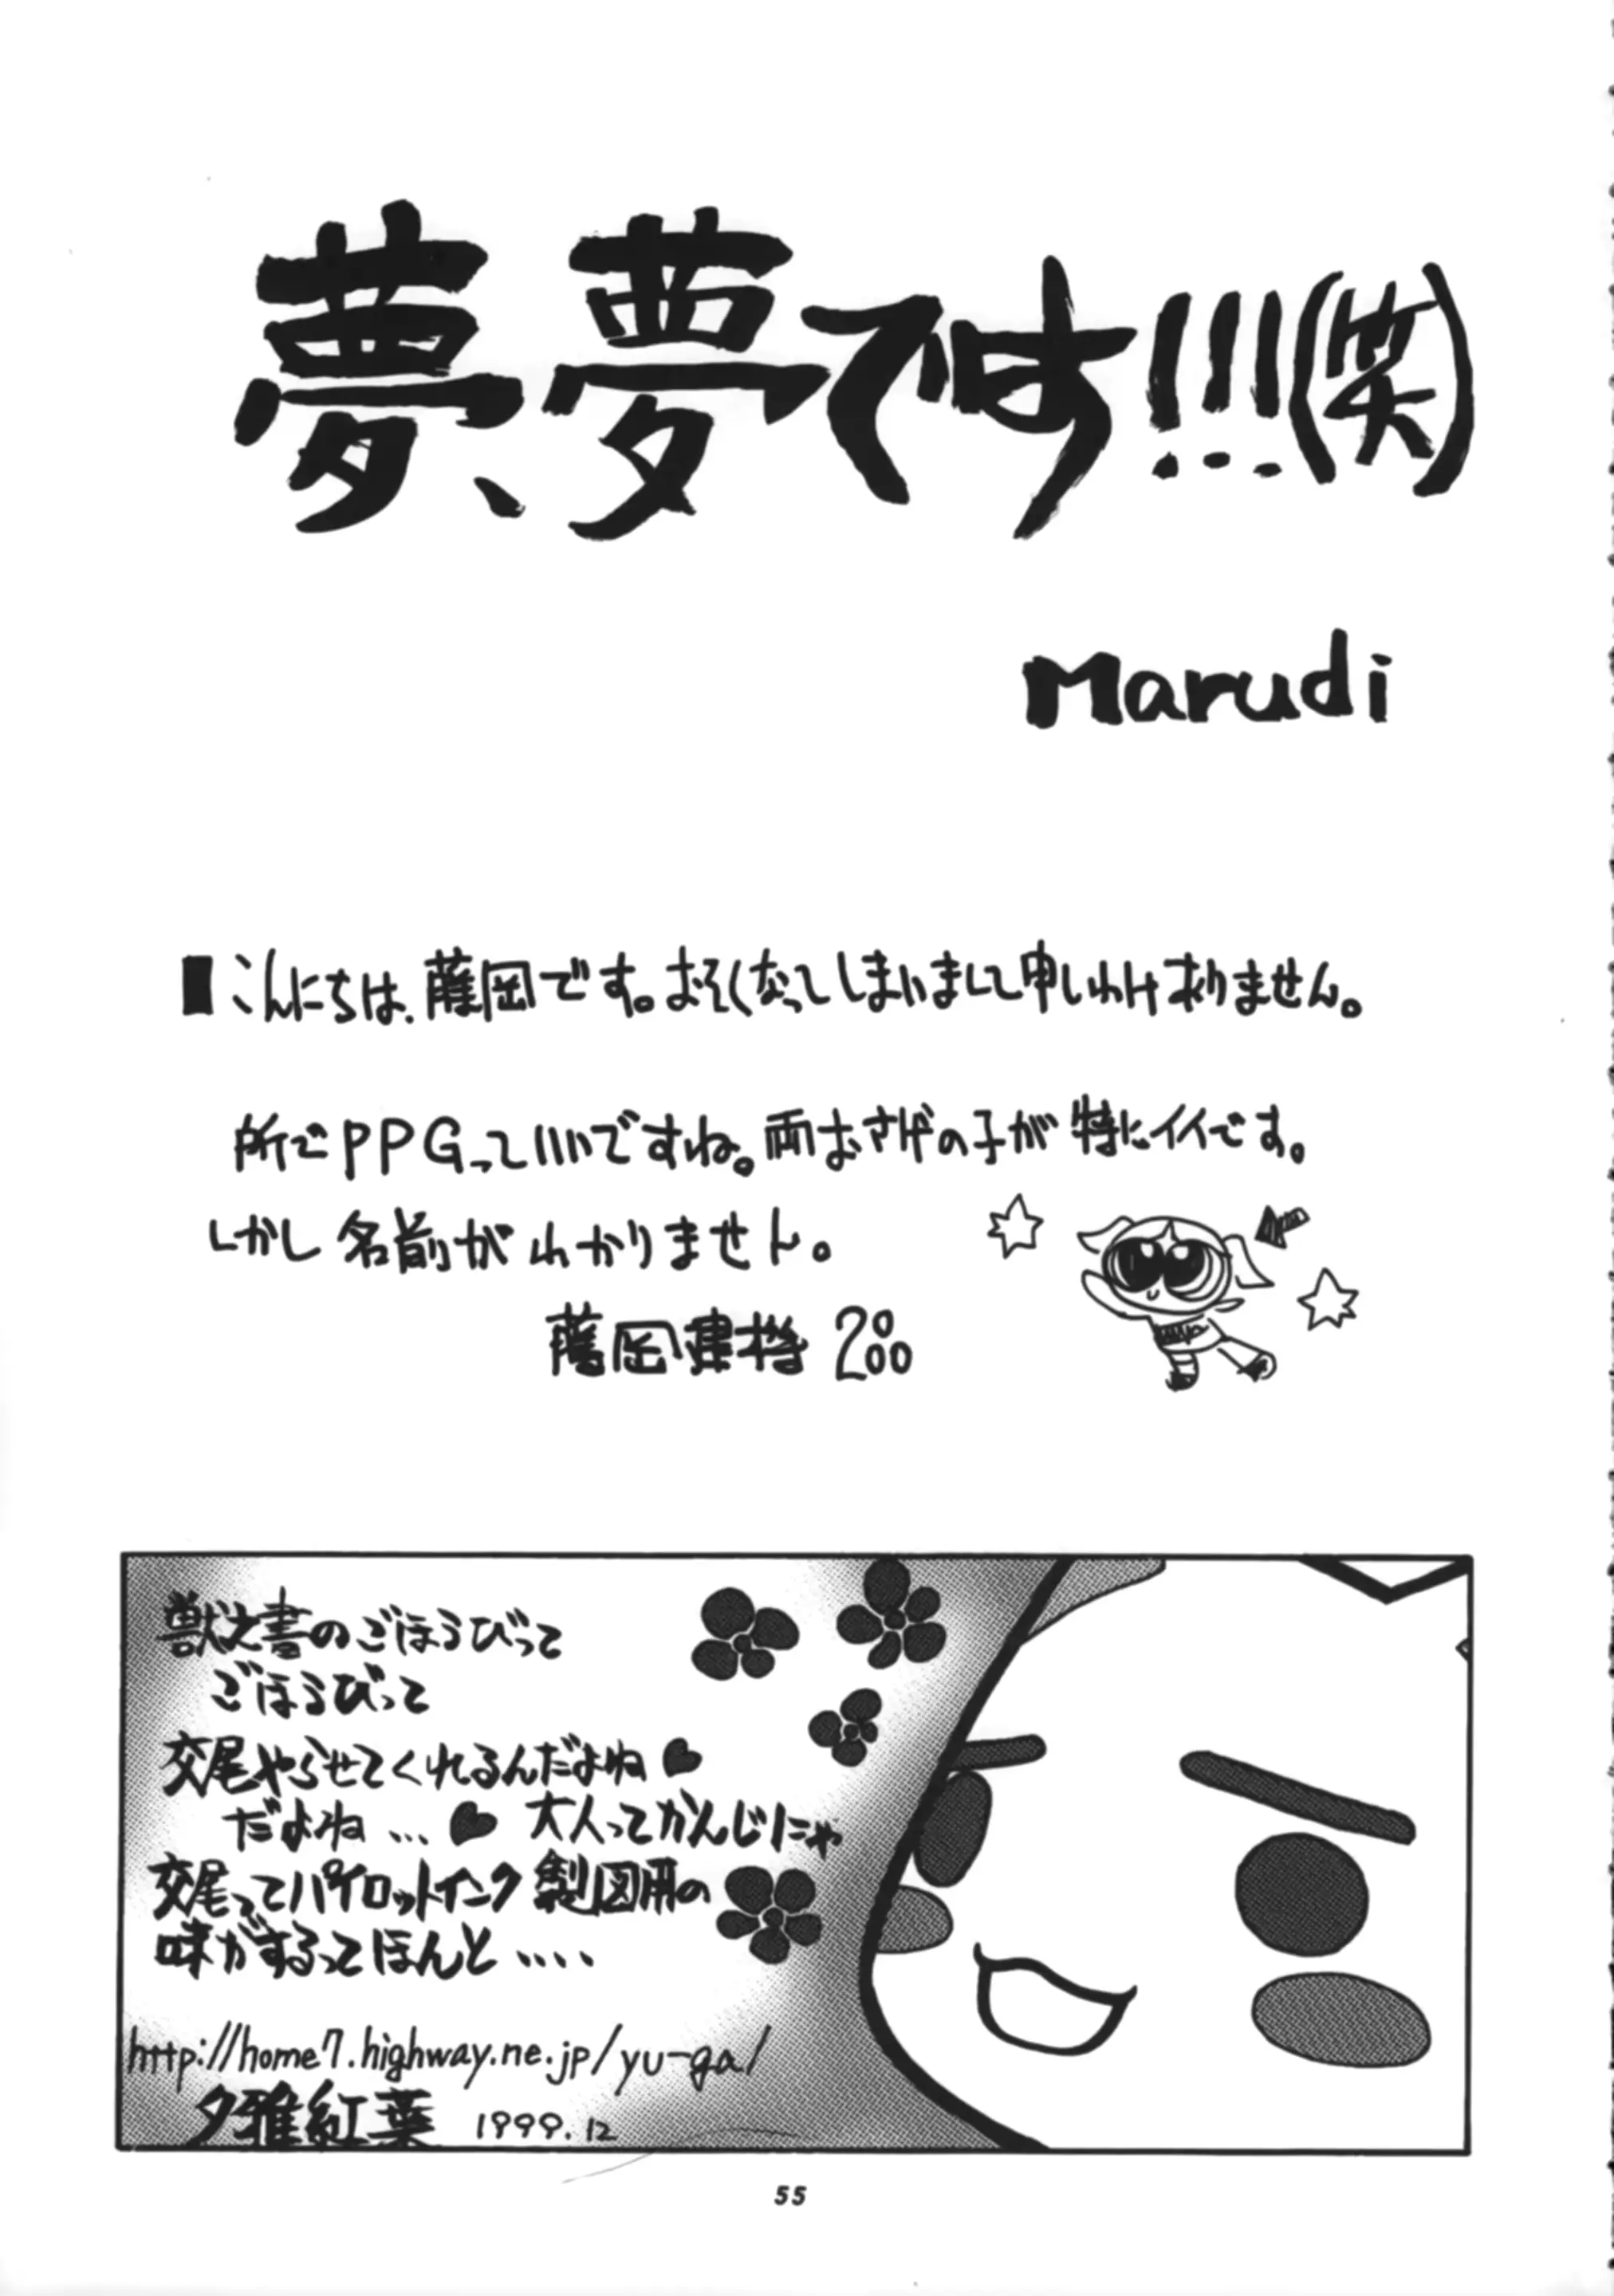 夢、夢です!!!(笑)
Marudi
■こんにちは、藤岡です。おそくなってしまいまして申しわけありません。
所でPPGっていいですね。両おさげの子が特にイイです。
しかし名前がわかりません。
藤岡建機 2000
獣之書のごほうびって
ごほうびって
交尾やらせてくれるんだよね♥
だよね…♥ 大人ってかんじにゃ
交尾ってパイロットインク製図用の
味がするってほんと‥‥
http://home7.highway.ne.jp/yu-ga/
夕雅紅葉 1999.12
55